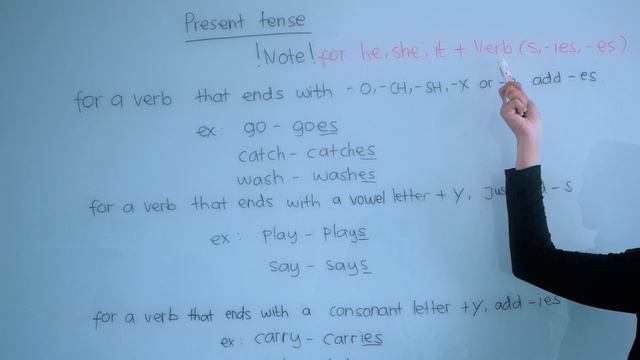 Present tense
!Note! for he, she, it + Verb (s, -ies, -es)
for a verb that ends with - O, -CH, -SH, -X or add -es
ex: go - goes
catch - catches
wash - washes
for a verb that ends with a vowel letter + Y, - s
ex: play - plays
say - says
for a verb that ends with a consonant letter +y, add -ies
ex: carry - carries